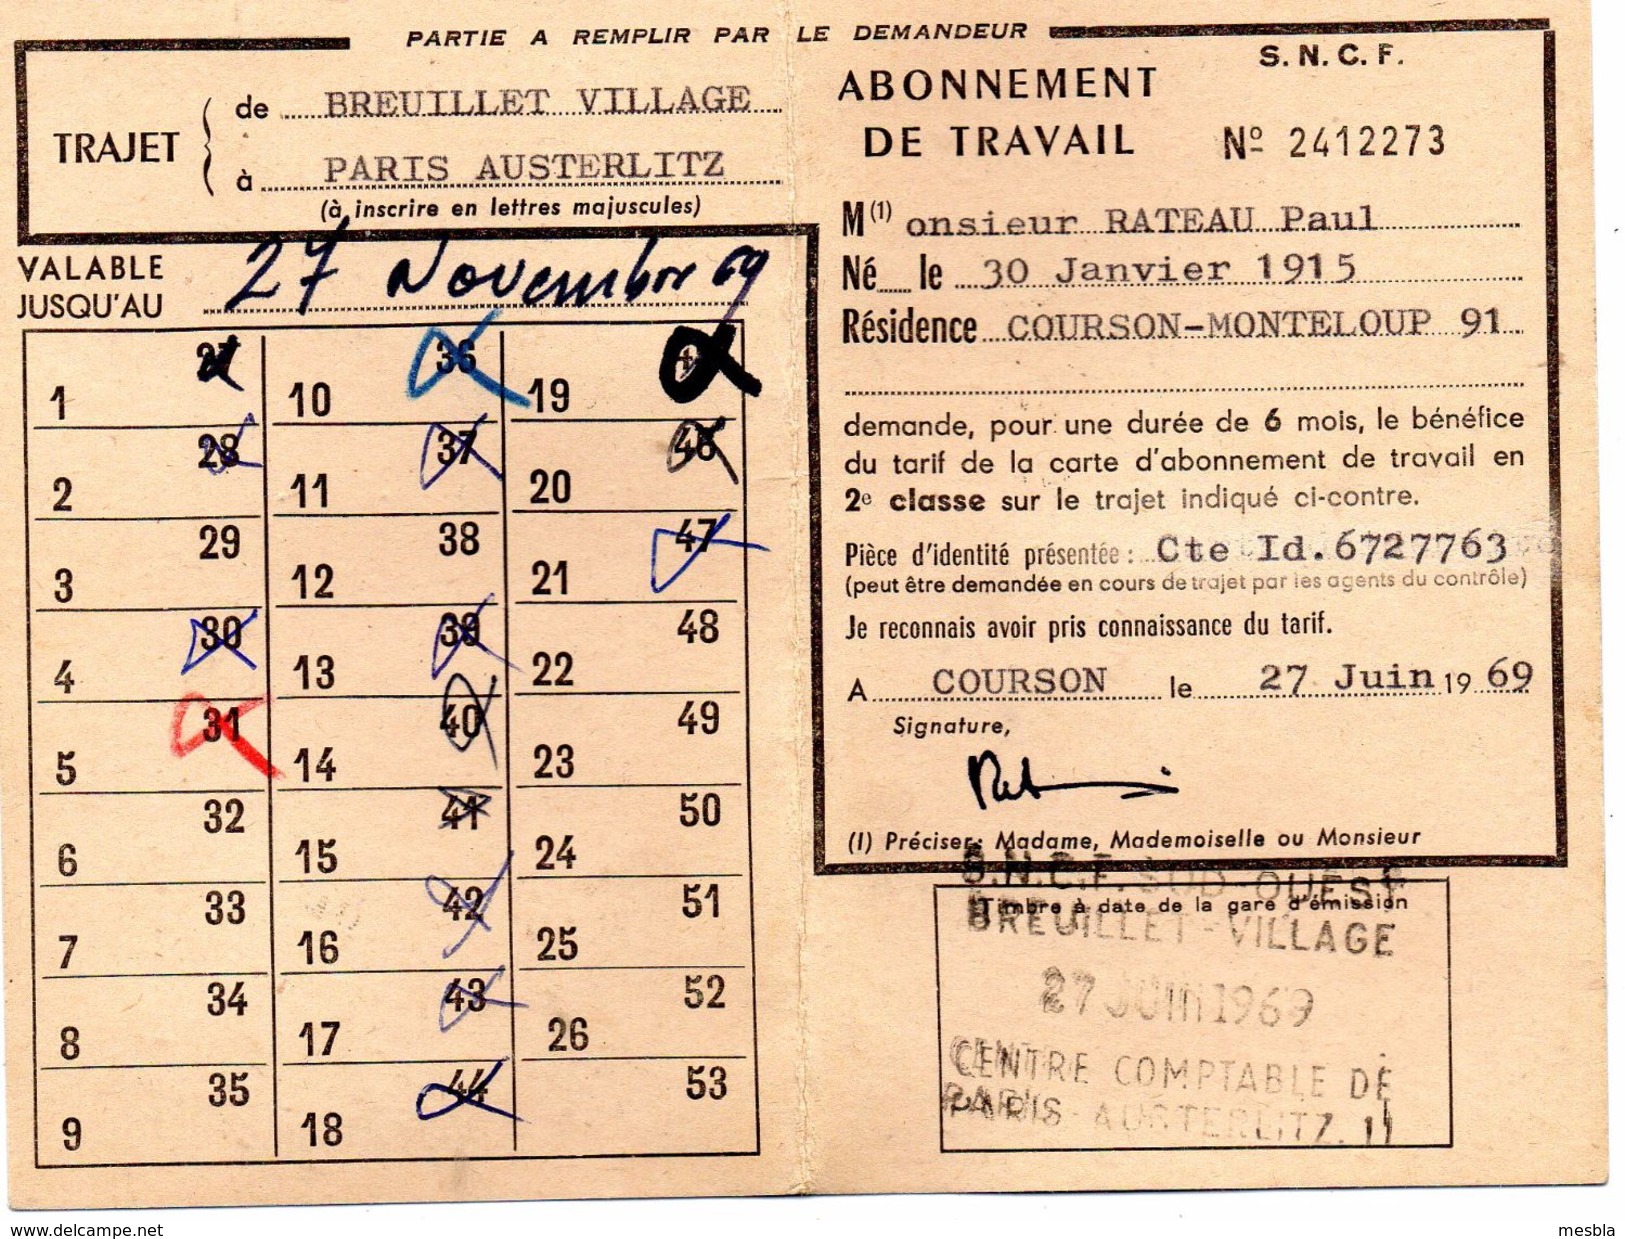 PARTIE A REMPLIR PAR LE DEMANDEUR
TRAJET
de BREUILLET VILLAGE
à PARIS AUSTERLITZ
(à inscrire en lettres majuscules)
VALABLE
JUSQU'AU
27 Novembre 69
27 36
1 10 19
28 37 46
2 11 20
29 38 47
3 12 21
30 39 48
4 13 22
31 40 49
5 14 23
32 41 50
6 15 24
33 42 51
7 16 25
34 43 52
8 17 26
35 44 53
9 18
S. N. C. F.
ABONNEMENT
DE TRAVAIL Nº 2412273
M(1) onsieur RATEAU Paul
Né le 30 Janvier 1915
Résidence COURSON-MONTELOUP 91
demande, pour une durée de 6 mois, le bénéfice
du tarif de la carte d'abonnement de travail en
2e classe sur le trajet indiqué ci-contre.
Pièce d'identité présentée : Cte Id. 6727763
(peut être demandée en cours de trajet par les agents du contrôle)
Je reconnais avoir pris connaissance du tarif.
A COURSON le 27 Juin 1969
Signature,
(1) Préciser: Madame, Mademoiselle ou Monsieur
S.N.C.F. SUD-OUEST
Timbre à date de la gare d'émission
BREUILLET-VILLAGE
27 JUIN 1969
CENTRE COMPTABLE DE
PARIS-AUSTERLITZ. 11
www.delcampe.net
mesbla